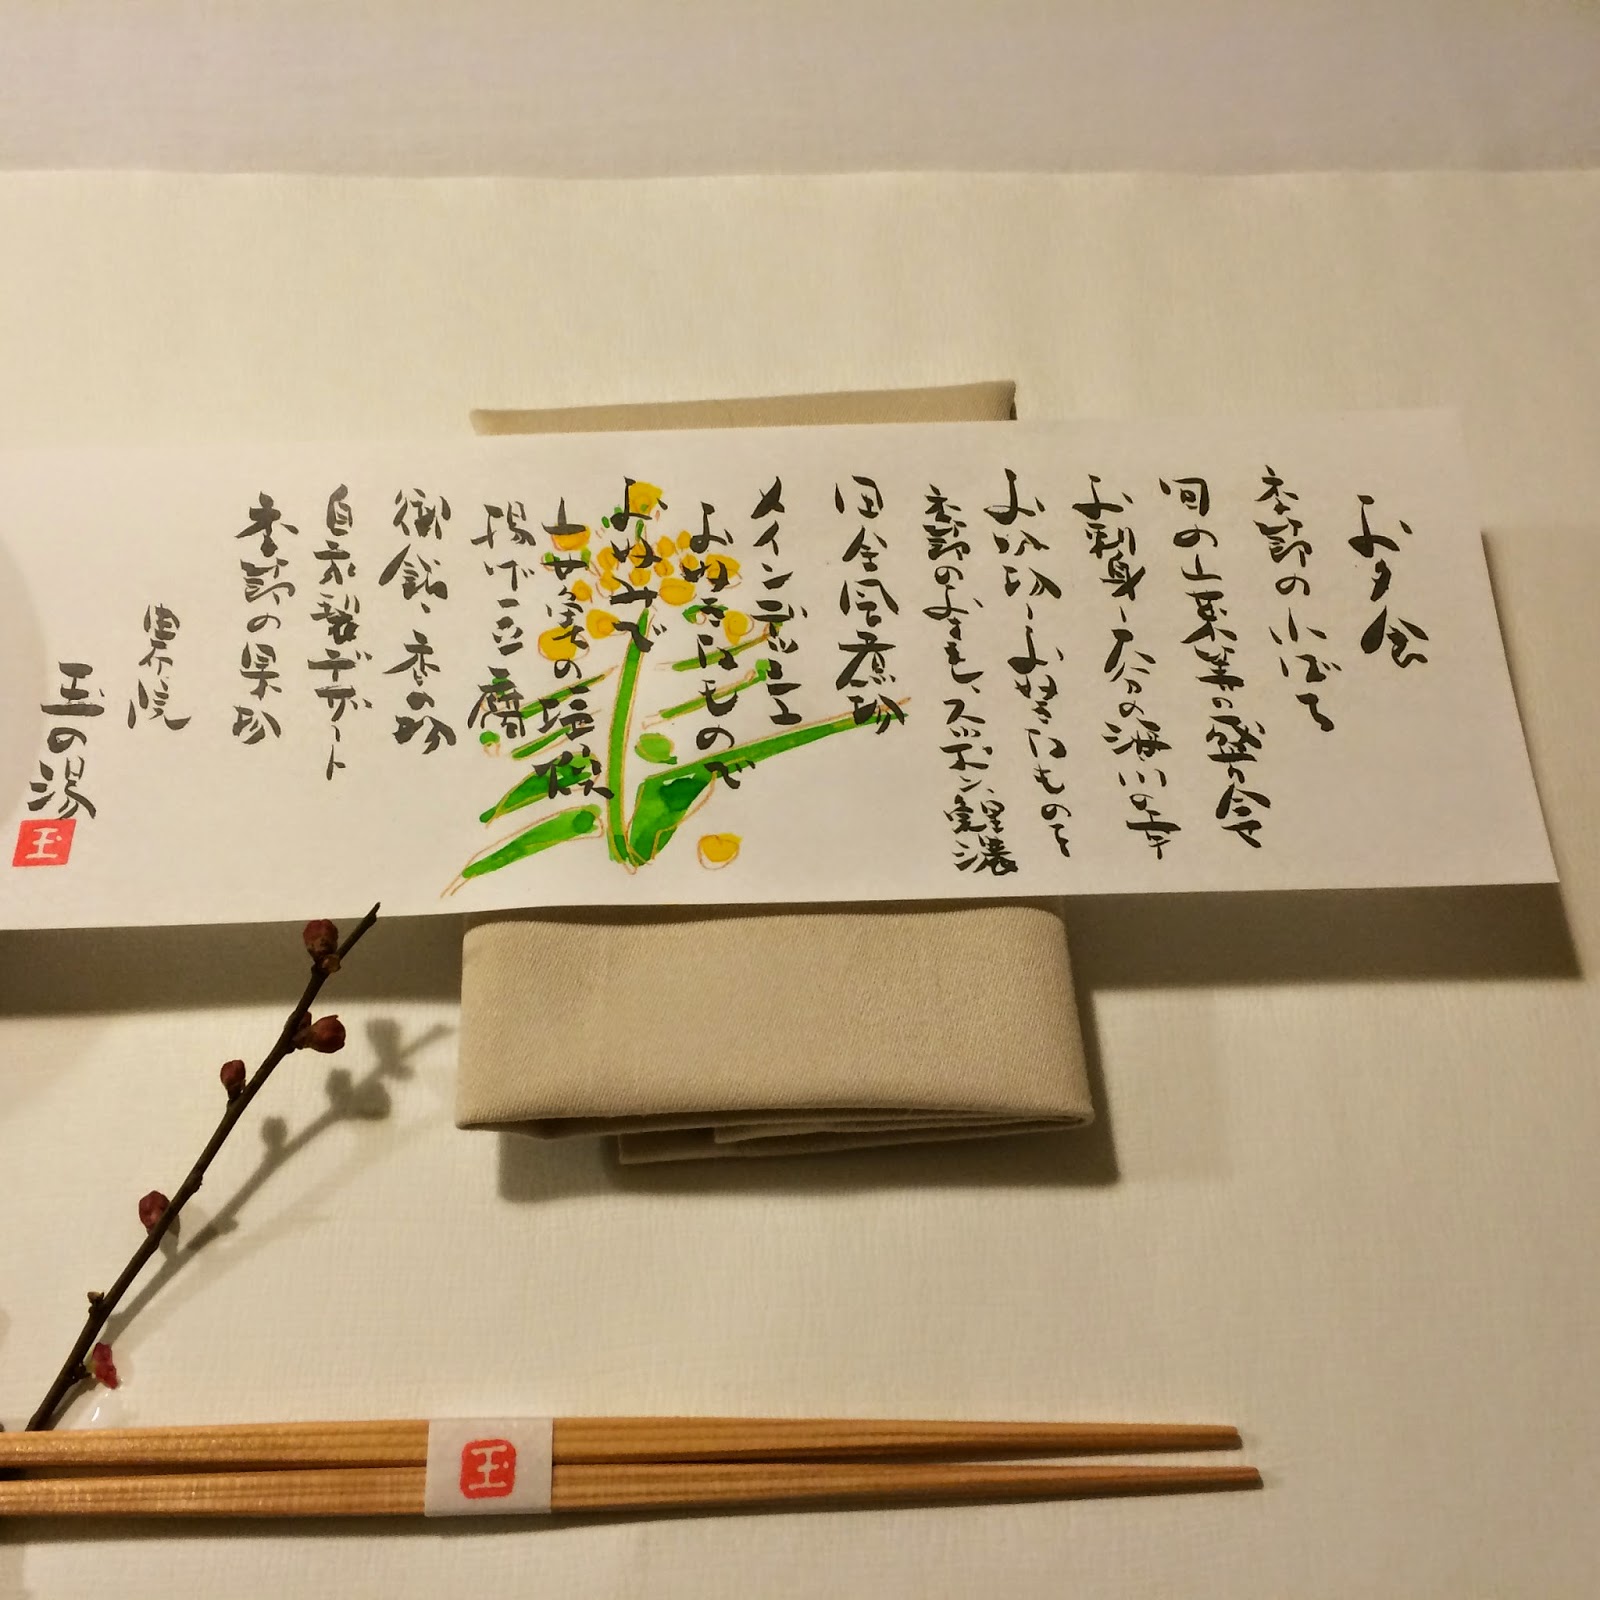 お夕食
季節の小ばち
旬の山菜等の盛合せ
お刺身、大分の海川の幸
お吸物、お好きなものを
季節のおすまし、スッポン、鶏濃
田舎風煮物
メインディッシュ
お好きなもので
お好みで
山女魚の塩焼
揚げ豆腐
御飯、香の物
自家製デザート
季節の果物
由布院
玉の湯
玉
玉